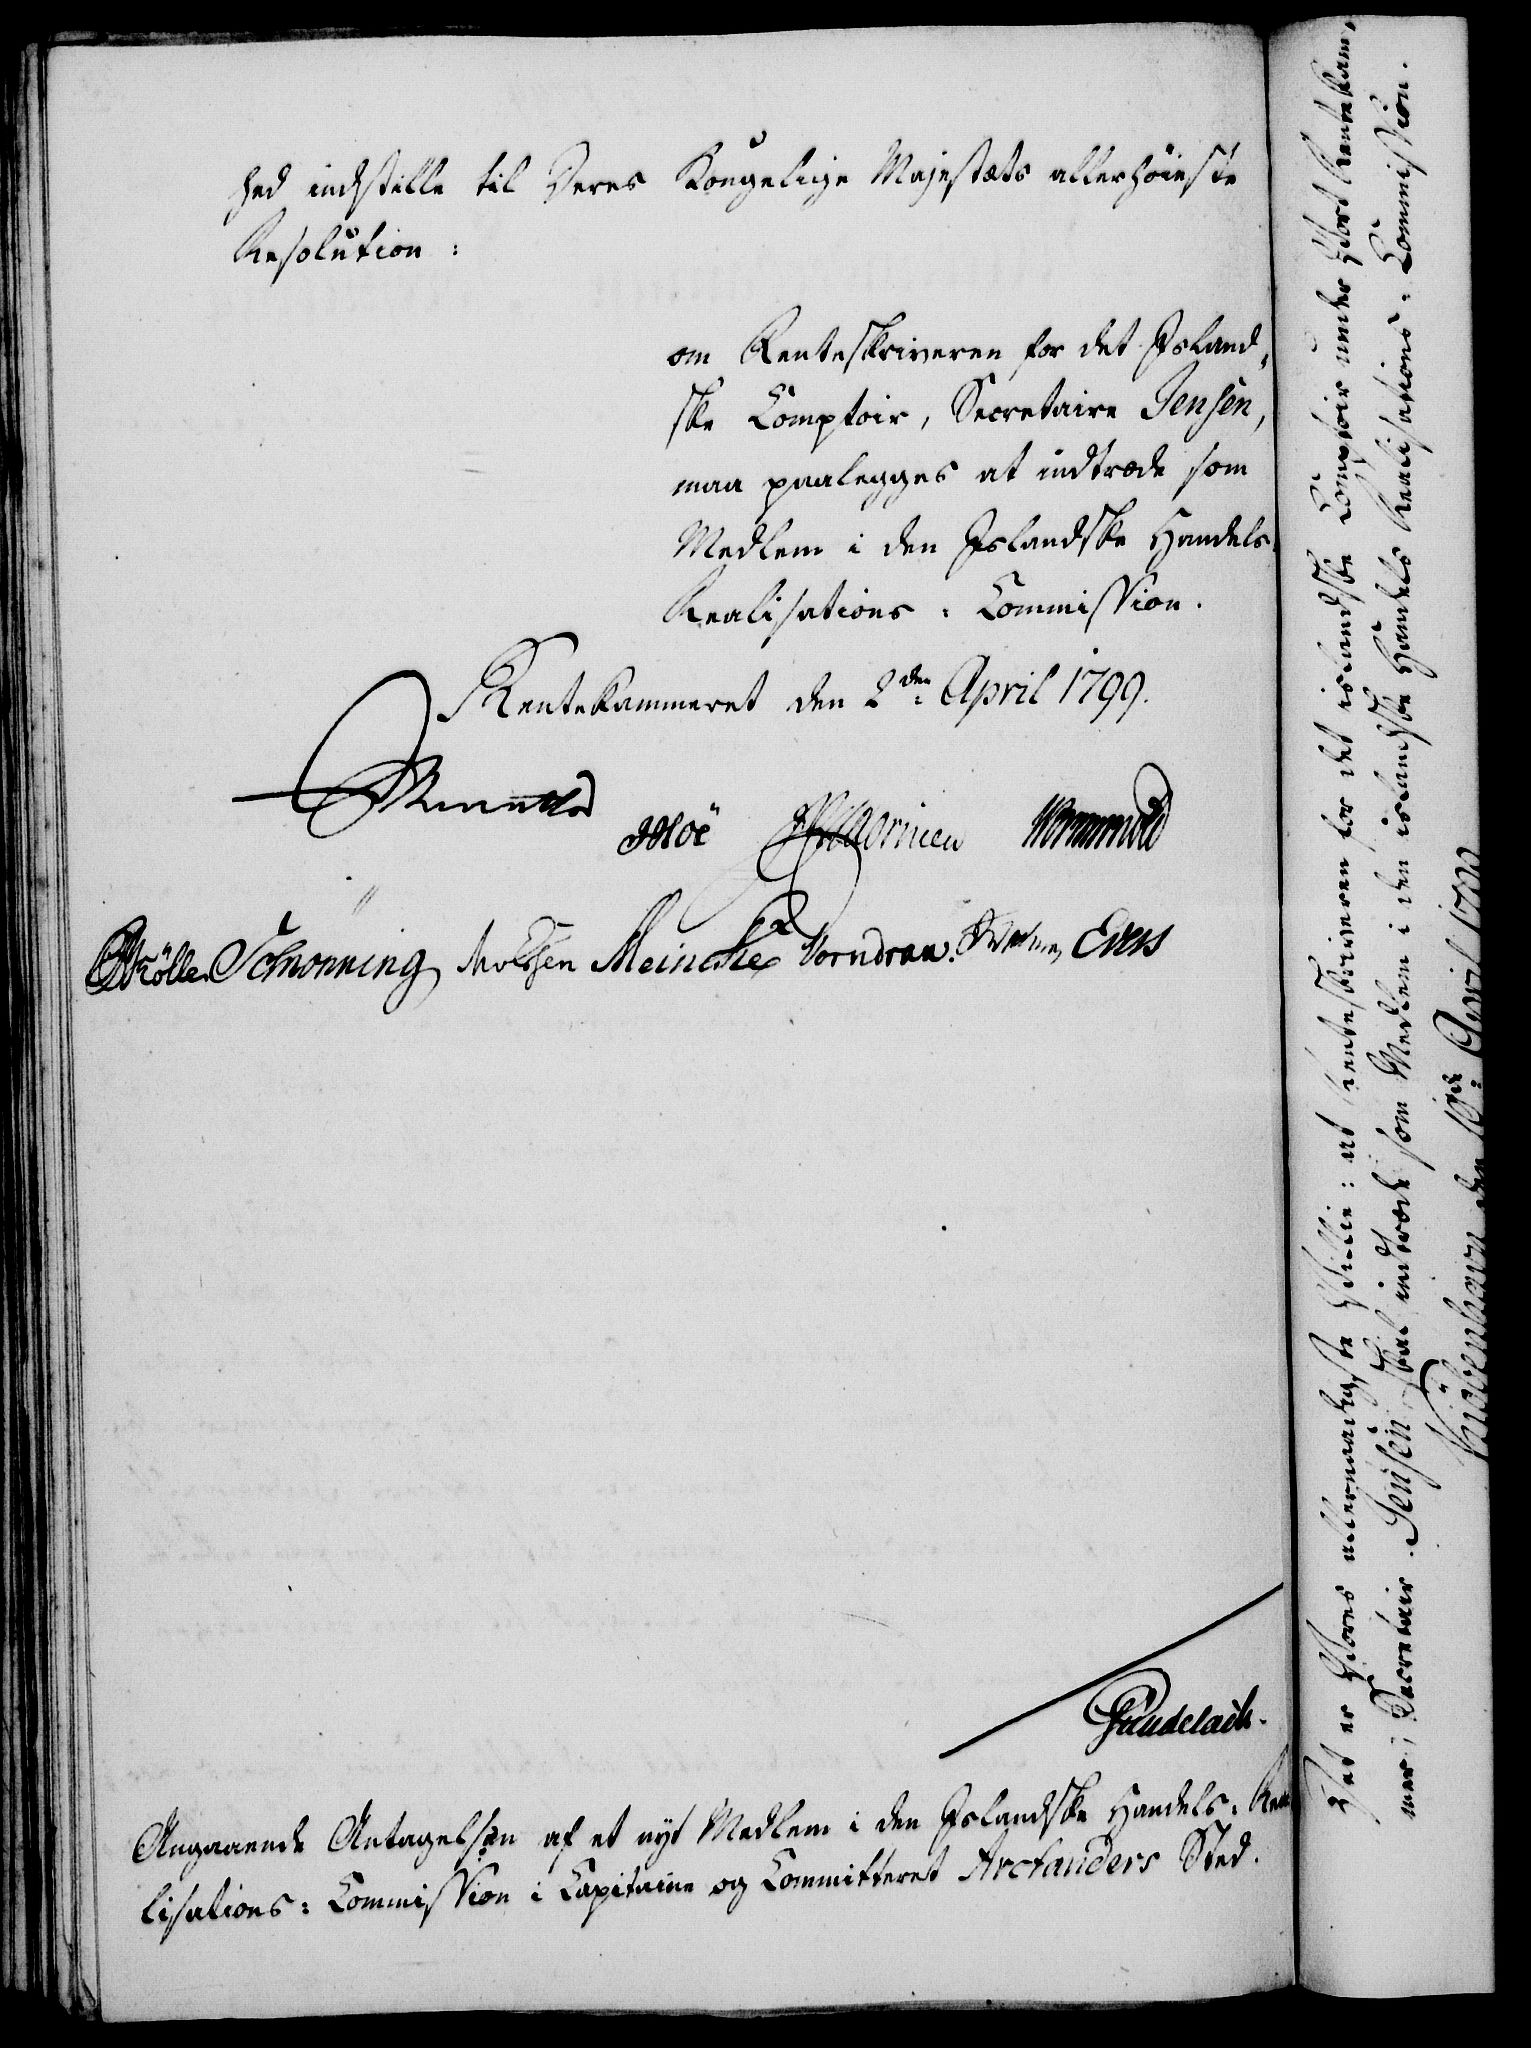 hed indstille til Deres Kongelige Majestæts allerhöieste
Resolution:
om Renteskriveren for det Island-
ske Comptoir, Secretaire Jensen,
maa paalegges at indtræde som
Medlem i den Islandske Handels-
Realisations-Commission.
Rentekammeret den 2den April 1799.
Wormskiold
Möller Schönning Meincke Vorndran. Evers
Angaaende Antagelsen af et nyt Medlem i den Islandske Handels-Rea
lisations-Commission i Capitaine og Committeret Arctanders Sted.
Det er Vores allernaadigste Villie: at Renteskriveren for det islandske Comptoir under Vort Rentekam-
mer, Secretair Jensen, skal indtræde som Medlem i den islandske Handels Realisations-Commission.
Kiöbenhavn den 10de April 1799